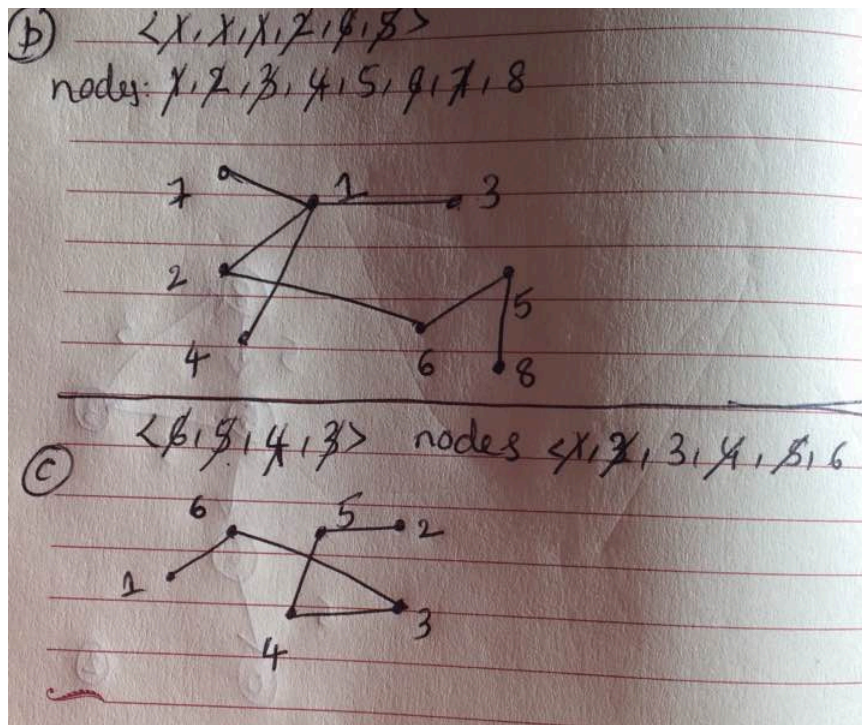 b <1, 1, 1, 2, 6, 5>
nodes: 1, 2, 3, 4, 5, 6, 7, 8
7 1 3
2 5
4 6 8
c <6, 5, 4, 3> nodes <1, 2, 3, 4, 5, 6
6 5 2
1 3
4